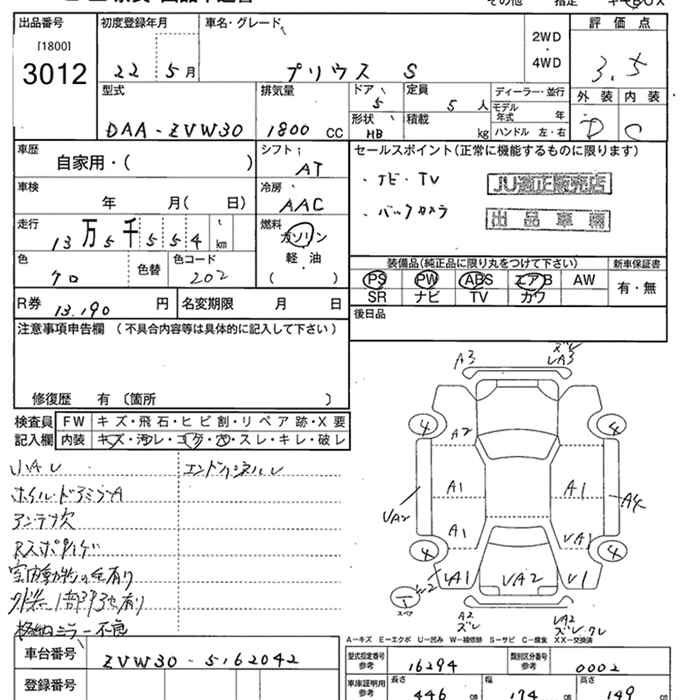 その他
出品番号 初度登録年月 車名・グレード 2WD・4WD 評価点
[1800]
3012 22 5月 プリウス S 3.5
型式 排気量 ドア 5 定員 5人 ディーラー・並行 外装 内装
DAA-ZVW30 1800CC 形状 HB 積載 kg モデル年式 年 ハンドル 左・右 D C
車歴 自家用・( ) シフト AT セールスポイント(正常に機能するものに限ります)
車検 年 月( 日) 冷房 AAC ・ナビ・TV JU適正販売店
走行 13万5千554km 燃料 ガソリン 軽・油 ( ) ・バックカメラ 出品車輌
色 クロ 色替 色コード 202
装備品(純正品に限り丸をつけて下さい) 新車保証書
PS PW ABS エアB AW 有・無
SR ナビ TV カワ
R券 13.190円 名変期限 月 日 後日品
注意事項申告欄(不具合内容等は具体的に記入して下さい)
修復歴 有〔箇所 〕
検査員 FW キズ・飛石・ヒビ割・リペア跡・X要
記入欄 内装 キズ・汚レ・コゲ・穴・スレ・キレ・破レ
小AU
アンテナ欠
室内動物の毛有り
格納ミラー不良
A3 ズレ UA3
4 4
A2
A1 A1
UA2 A4
A1 UA1
4 4
UA1 UA2 U1
A2 ズレ UA2 ズレ
A-キズ E-エクボ U-凹み W-補修跡 S-サビ C-腐食 XX-交換済
車台番号 ZVW30-5162042
登録番号
型式指定番号 参考 16294 類別区分番号 参考 0002
車庫証明用 参考 長さ 446cm 幅 174cm 高さ 149cm